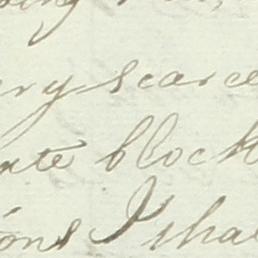 ry scarce
ate block
ons I sha